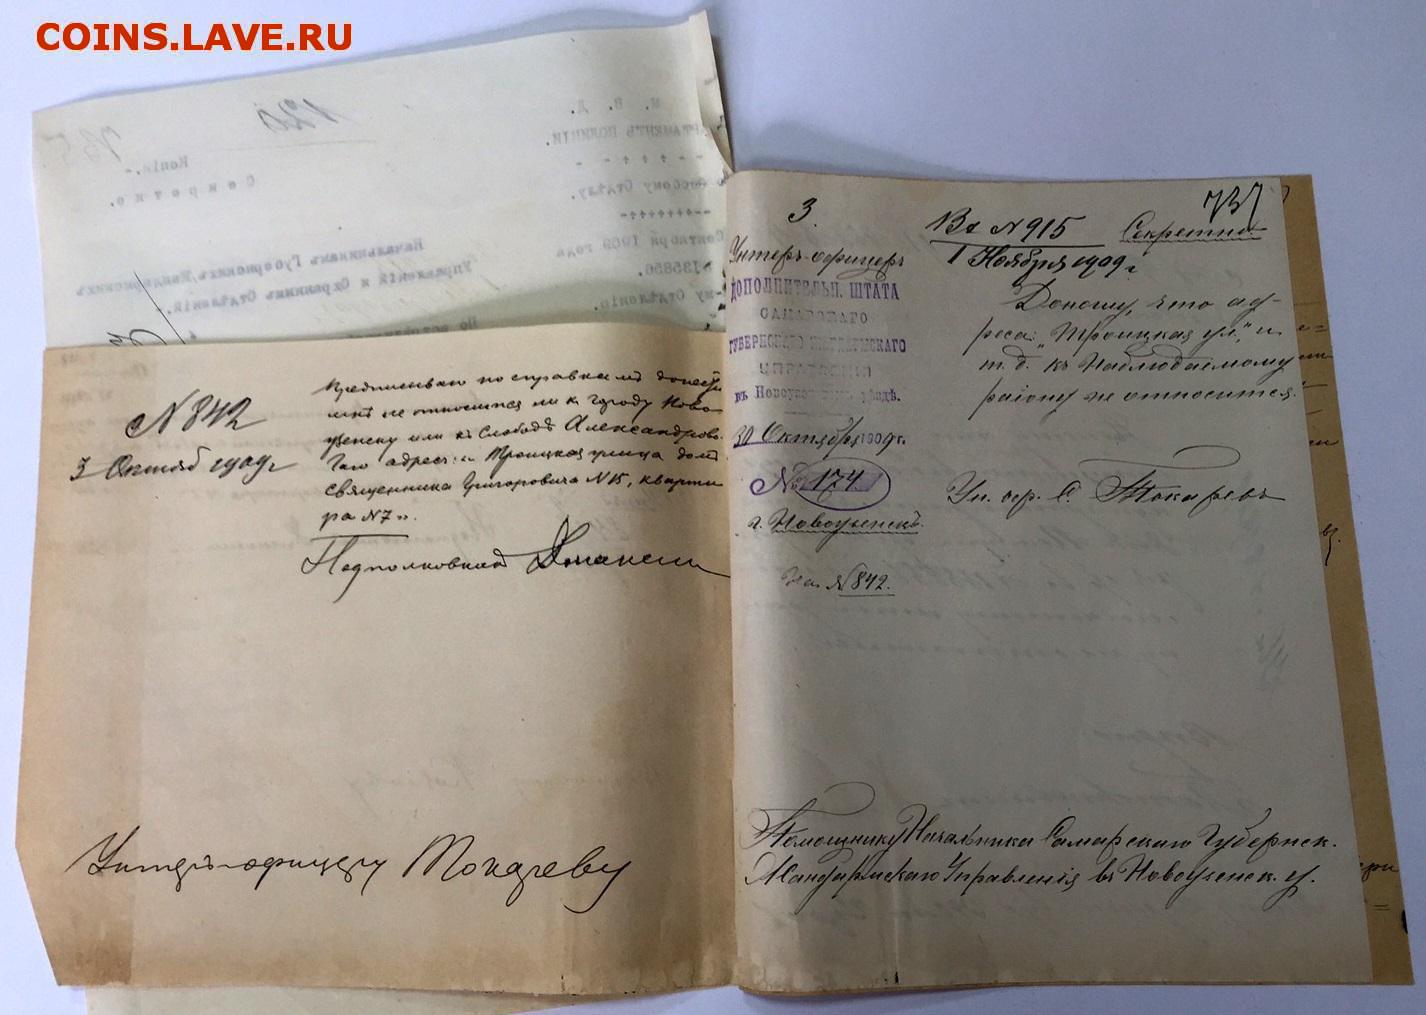 COINS.LAVE.RU
М. В. Д.
ДЕПАРТАМЕНТЪ ПОЛИЦІИ.
Копія.
Секретно.
Особому Отдѣлу.
Сентября 1909 года
№135856.
Отдѣленію.
Начальникамъ Губернскихъ Жандармскихъ
Управленій и Охранныхъ Отдѣленій.
120
735
N 842
3 Октяб 1909 г
Предписываю по справкамъ донести
мнѣ не относится ли къ городу Ново
узенску или къ Слободѣ Александрово
Гаю адресъ: „Троицкая улица домъ
священника Григоровича N 15, кварти
ра N 7".
Подполковникъ
Унтеръ-офицеру Токареву
3.
737
Унтеръ-офицеръ
ДОПОЛНИТЕЛЬН. ШТАТА
САМАРСКАГО
ГУБЕРНСКАГО ЖАНДАРМСКАГО
УПРАВЛЕНІЯ
въ Новоузенскомъ уѣздѣ.
30 Октября 1909 г.
№ 174
г. Новоузенскъ.
На N 842.
Вх N 915 Секретно
1 Ноября 1909 г
Доношу, что ад-
ресъ: „Троицкая ул.", и
т. д. къ Наблюдаемому
району не относится.
Ун. оф. С. Токаревъ
Помощнику Начальника Самарскаго Губернск.
Жандармскаго Управленія въ Новоузенск. у.